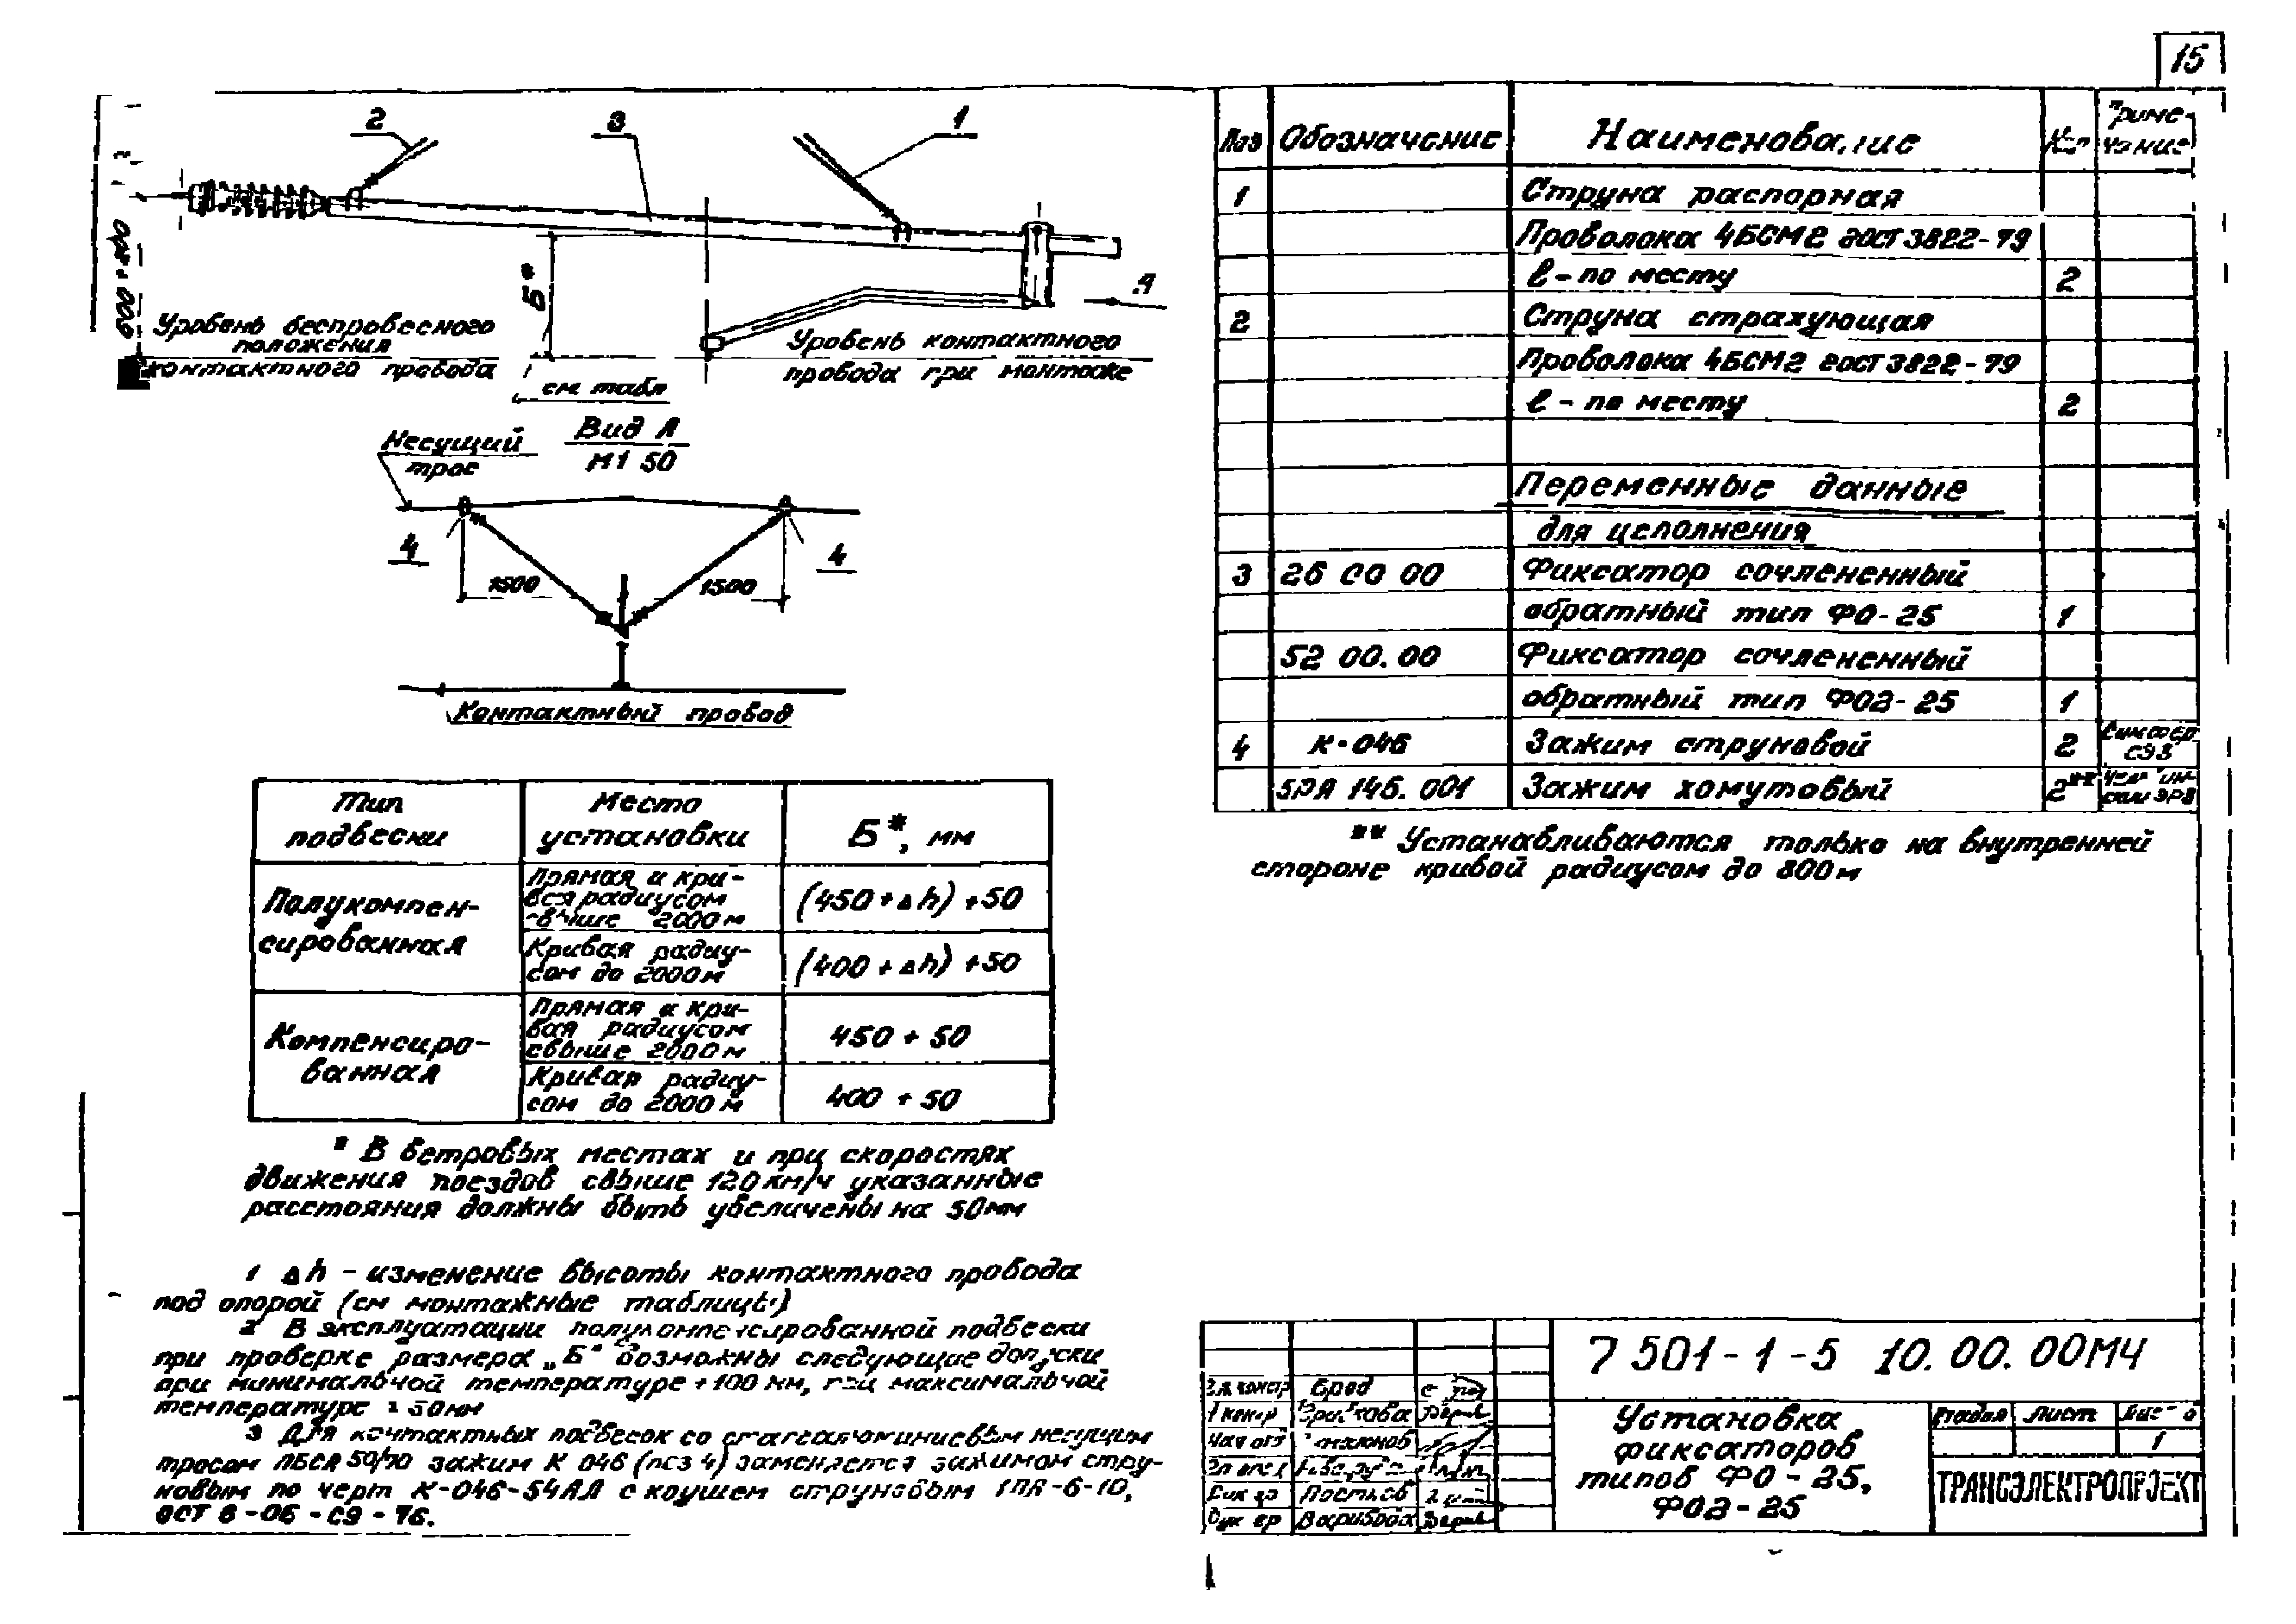 15
2
3
1
Б*
А
Уровень беспровесного
положения
контактного провода
Уровень контактного
провода при монтаже
см табл
Вид А
М1 50
Несущий
трос
4
4
1500
1500
Контактный провод
Тип подвески
Место установки
Б*, мм
Полукомпен-
сированная
Прямая и кри-
вая радиусом
свыше 2000м
(450+Δh) +50
Кривая радиу-
сом до 2000м
(400 + Δh) +50
Компенсиро-
ванная
Прямая и кри-
вая радиусом
свыше 2000м
450 + 50
Кривая радиу-
сом до 2000м
400 + 50
* В ветровых местах и при скоростях
движения поездов свыше 120 км/ч указанные
расстояния должны быть увеличены на 50мм
1 Δh – изменение высоты контактного провода
под опорой (см монтажные таблицы)
2 В эксплуатации полукомпенсированной подвески
при проверке размера „Б" возможны следующие допуски
при минимальной температуре +100 мм, при максимальной
температуре ± 50мм
3 Для контактных подвесок со сталеалюминиевым несущим
тросом ПБСА 50/70 зажим К 046 (поз 4) заменяется зажимом стру-
новым по черт К-046-54АЛ с коушем струновым
Поз Обозначение Наименование Кол Приме-
чание
1 Струна распорная
Проволока 4БСМ2 ГОСТ 3822-79
ℓ - по месту 2
2 Струна страхующая
Проволока 4БСМ2 ГОСТ 3822-79
ℓ - по месту 2
Переменные данные
для исполнения
3 26 00 00 Фиксатор сочлененный
обратный тип ФО-25 1
52 00.00 Фиксатор сочлененный
обратный тип ФОГ-25 1
4 К-046 Зажим струновой 2
Зажим хомутовый 2**
** Устанавливаются только на внутренней
стороне кривой радиусом до 800м
7 501-1-5 10.00.00МЧ
Установка
фиксаторов
типов ФО-25,
ФОГ-25
Стадия Лист Листов
1
ТРАНСЭЛЕКТРОПРОЕКТ